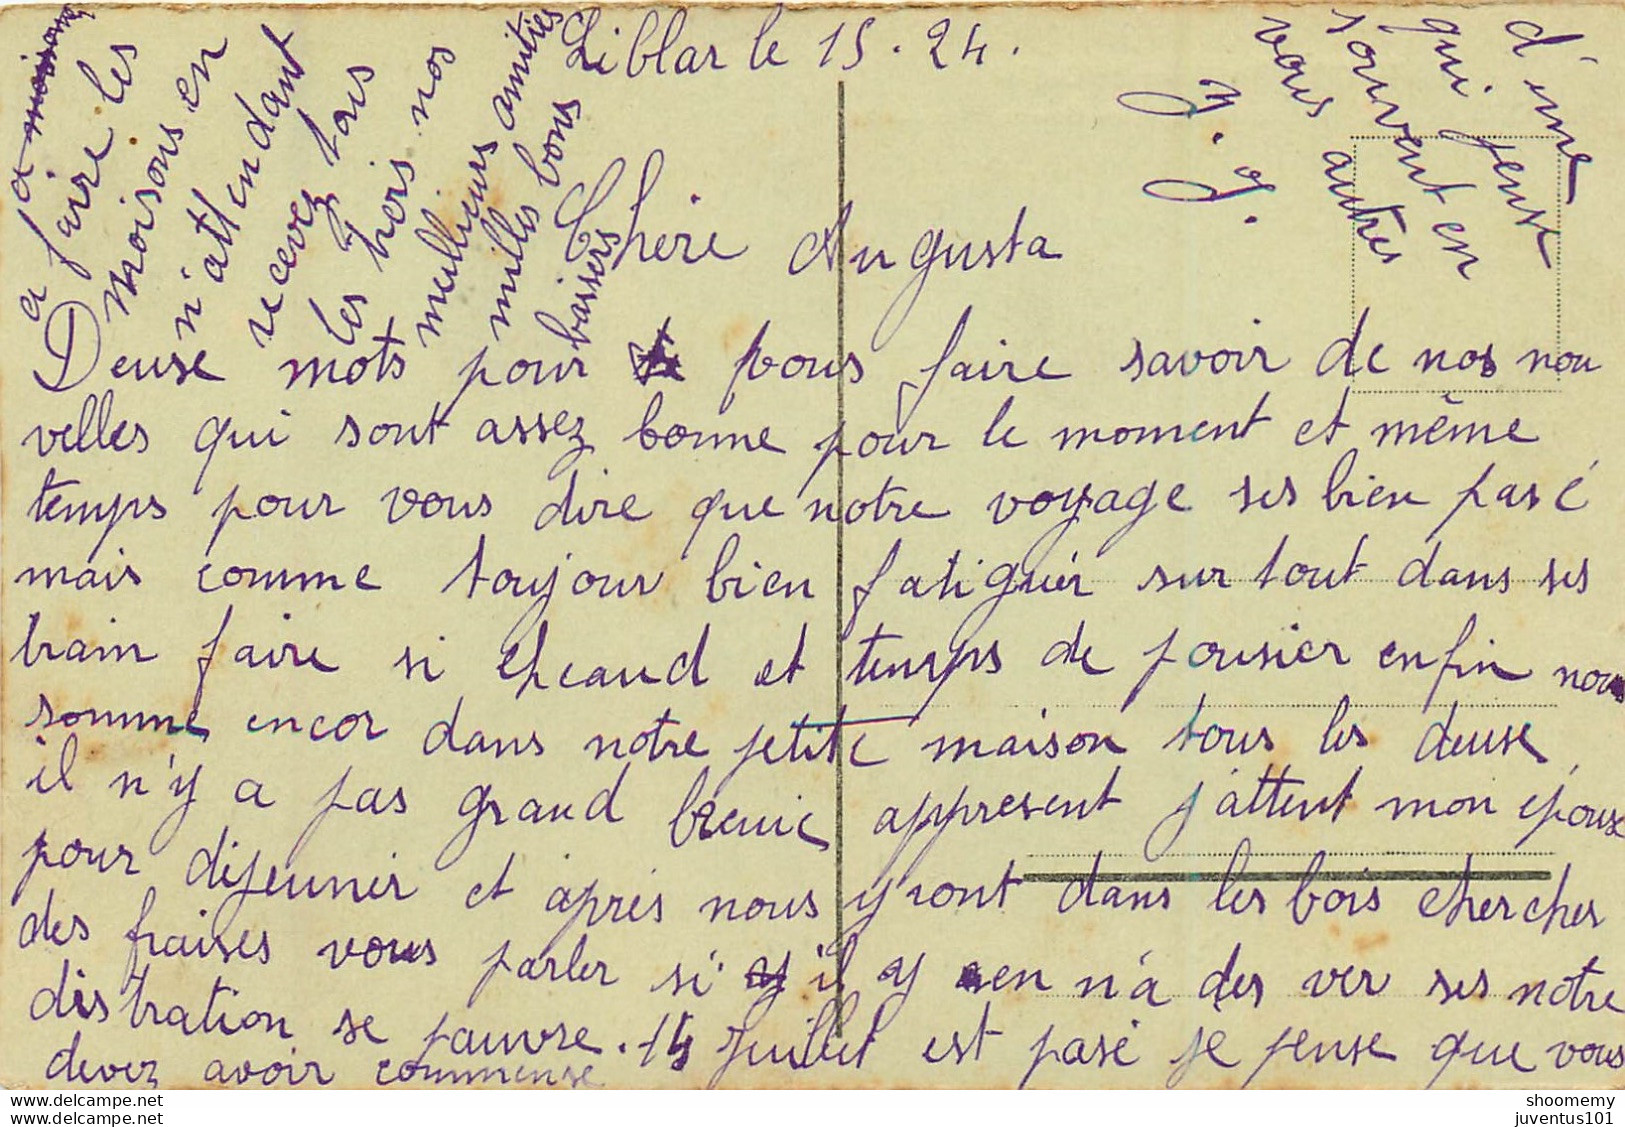 Liblar le 15.24.
Chère Augusta
Deuse mots pour vous faire savoir de nos nou
velles qui sont assez bonne pour le moment et même
temps pour vous dire que notre voyage ses bien pasé
mais comme toujour bien fatiguér sur tout dans ses
train faire si cheaud et temps de pousier enfin nous
somme encor dans notre petite maison tous les deuse
il n'y a pas grand appresent j'attent mon epouse
pour dijeunér et aprés nous yront dans les bois chercher
des fraises vous parler si il y en n'a des ver ses notre
distration se pauvre. 14 Juillet est pasé je pense que vous
devez avoir commense
a faire les
moisons en
n'attendant
recevez tous
les trois nos
meilleurs amitiés
milles bons
baisers
d'une
qui pense
souvent en
vous autres
Y. Y.
shoomemy
juventus101